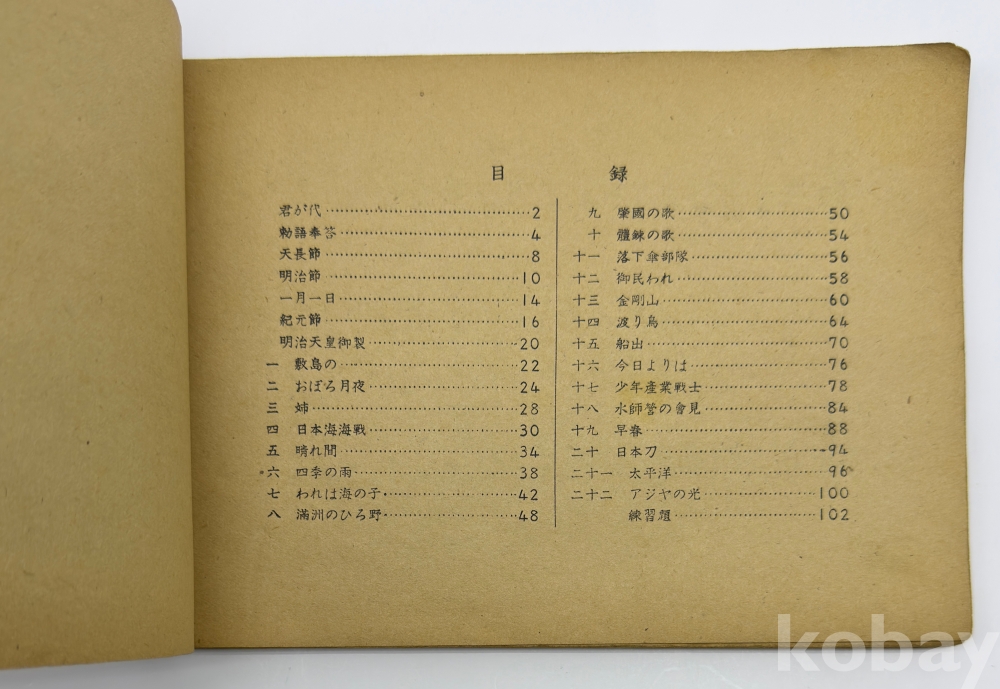 目 録
君が代 2
勅語奉答 4
天長節 8
明治節 10
一月一日 14
紀元節 16
明治天皇御製 20
一 敷島の 22
二 おぼろ月夜 24
三 姉 28
四 日本海海戰 30
五 晴れ間 34
六 四季の雨 38
七 われは海の子 42
八 滿洲のひろ野 48
九 肇國の歌 50
十 體錬の歌 54
十一 落下傘部隊 56
十二 御民われ 58
十三 金剛山 60
十四 渡り鳥 64
十五 船出 70
十六 今日よりは 76
十七 少年産業戰士 78
十八 水師營の會見 84
十九 早春 88
二十 日本刀 94
二十一 太平洋 96
二十二 アジヤの光 100
練習題 102
kobay